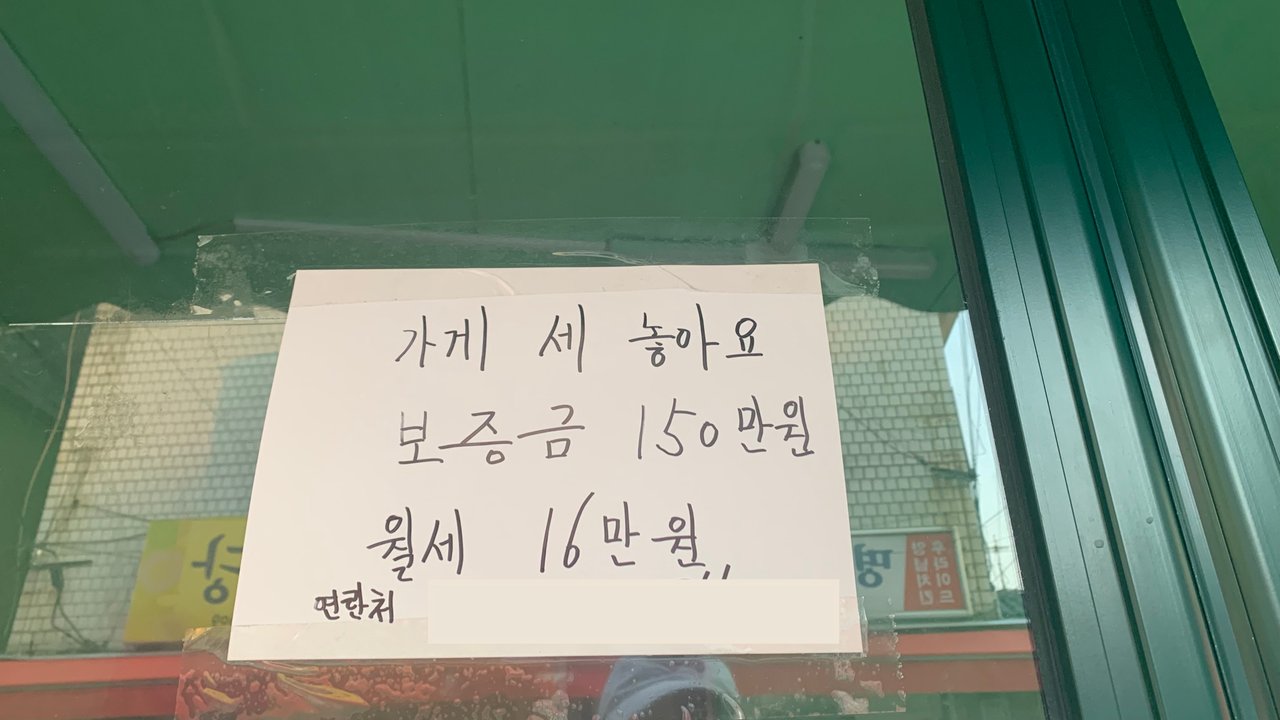 가게 세 놓아요
보증금 150만원
월세 16만원
연락처